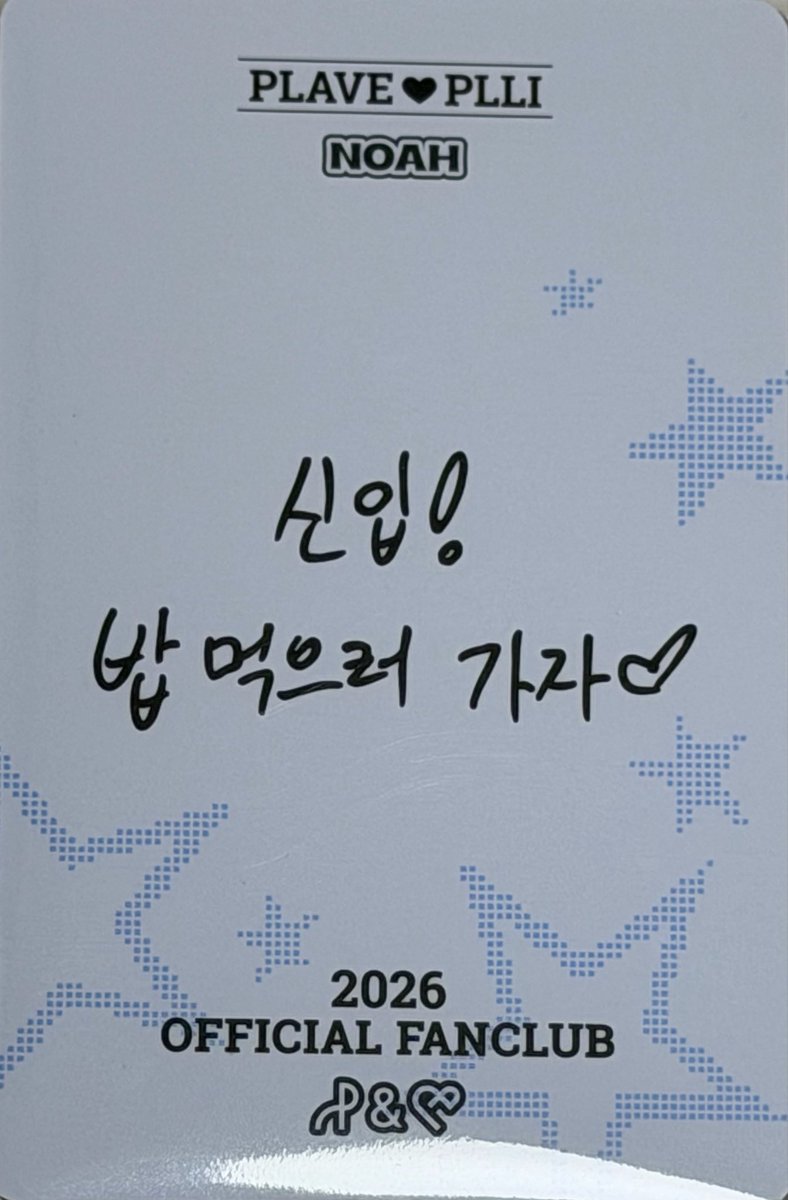 PLAVE♥PLLI
NOAH
신입!
밥 먹으러 가자♡
2026
OFFICIAL FANCLUB
P&